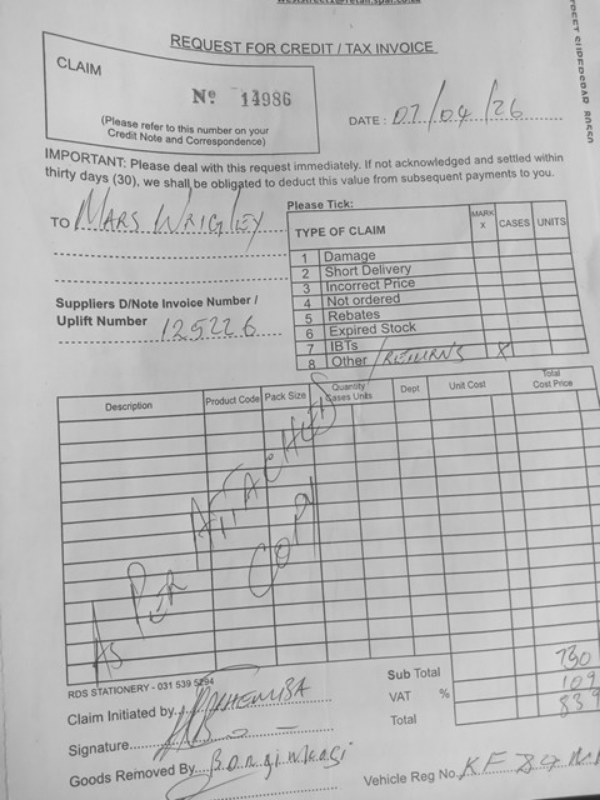 weststreet1@retail.spar.co.za
REQUEST FOR CREDIT / TAX INVOICE
CLAIM
Nº 14986
(Please refer to this number on your
Credit Note and Correspondence)
DATE : 07/04/26
IMPORTANT: Please deal with this request immediately. If not acknowledged and settled within
thirty days (30), we shall be obligated to deduct this value from subsequent payments to you.
TO MARS WRIGLEY
Please Tick:
TYPE OF CLAIM MARK X CASES UNITS
1 Damage
2 Short Delivery
3 Incorrect Price
4 Not ordered
5 Rebates
6 Expired Stock
7 IBTs
8 Other / RETURNS X
Suppliers D/Note Invoice Number /
Uplift Number 125226
Description Product Code Pack Size Quantity Cases Units Dept Unit Cost Total Cost Price
AS PER ATTACHED COPY
RDS STATIONERY - 031 539 5294
Sub Total 730
VAT % 109
Total 839
Claim Initiated by
Signature
Goods Removed By Bonginkosi
Vehicle Reg No. KF 84